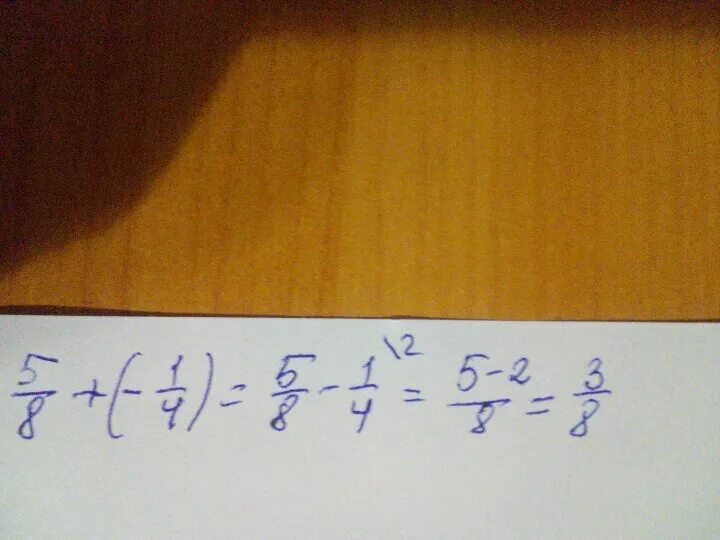 5/8 + (- 1/4) = 5/8 - 1/4 \2 = 5-2/8 = 3/8